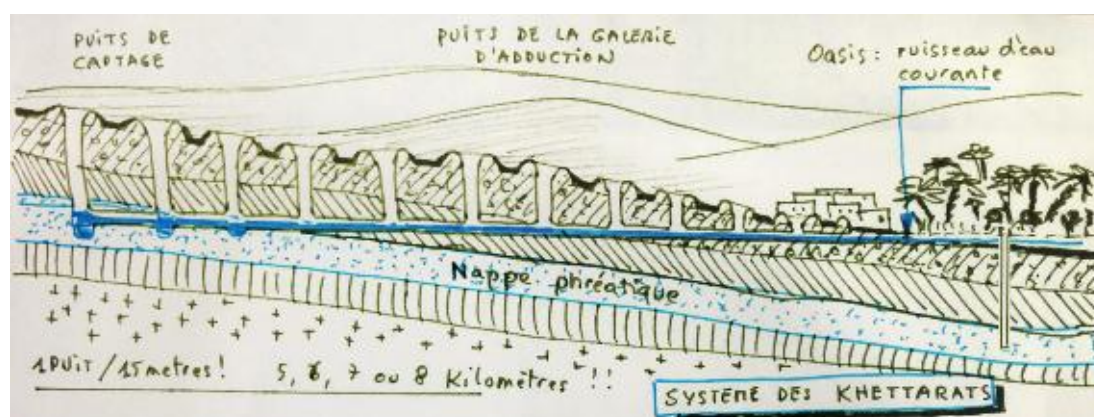 PUITS DE
CAPTAGE
PUITS DE LA GALERIE
D'ADDUCTION
Oasis : ruisseau d'eau
courante
Nappe phréatique
1 PUIT / 15 metres !
5, 6, 7 ou 8 Kilomètres !!
SYSTÈME DES KHETTARATS